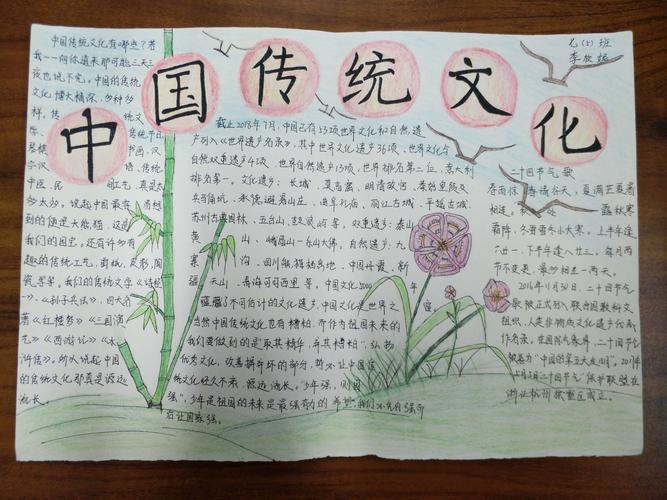 中国传统文化
七(2)班
中国传统文化有哪些？若
我一一向你道来那可能三天三
夜也说不完。中国的传统
文化博大精深，多种多
样。传统文
统节日
书画、汉
传统
中医、民间工艺，真是太
多太多。说起中国最
到的便是大熊猫，这是
我们的国宝。还有许多有
趣的传统工艺，剪纸、皮影、陶
瓷等等，我们的传统文学《诗经
》、《孙子兵法》，四大名
著《红楼梦》《三国演
义》《西游记》《水
浒传》。所以说起中国
的传统文化那真是源远
流长。
截止2018年7月，中国已有53项世界文化和自然遗
产列入《世界遗产名录》，其中世界文化遗产36项、世界文化与
自然双重遗产4项、世界自然遗产13项，世界排名第二位，意大利
排名第一。文化遗产：长城、莫高窟、明清故宫、秦始皇陵及
兵马俑坑、承德避暑山庄、曲阜孔府、丽江古城、平遥古城、
苏州古典园林、五台山、鼓浪屿等，双重遗产：泰山
黄山、峨眉山—乐山大佛。自然遗产：九
寨沟、四川熊猫栖息地、中国丹霞、新
疆天山、青海可可西里等。中国文化2000
不可估计的文化遗产，中国文化是世界之
当然中国传统文化也有糟粕，而作为祖国未来的
我们要做到的是“取其精华，弃其糟粕”，弘扬
优秀文化，改善拥有坏的部分，
统文化经久不衰，源远流长。“少年强，则国
强”，少年是祖国的未来是最强有力的希望，我们必先自强而
后让国家强。
二十四节气歌
春雨惊春清谷天，夏满芒夏暑
相连。秋处露秋寒
霜降，冬雪雪冬小大寒。上半年逢
六廿一，下半年逢八廿三。每月两
节不变更，最多相差一两天。
2016年11月30日，二十四节气
被正式列入联合国教科文
组织，人类非物质文化遗产代表
作名录。在国际气象界，二十四节气
被誉为“中国的第五大发明”。2017年
5月5日二十四节气保护联盟在
浙江杭州拱墅区成立。